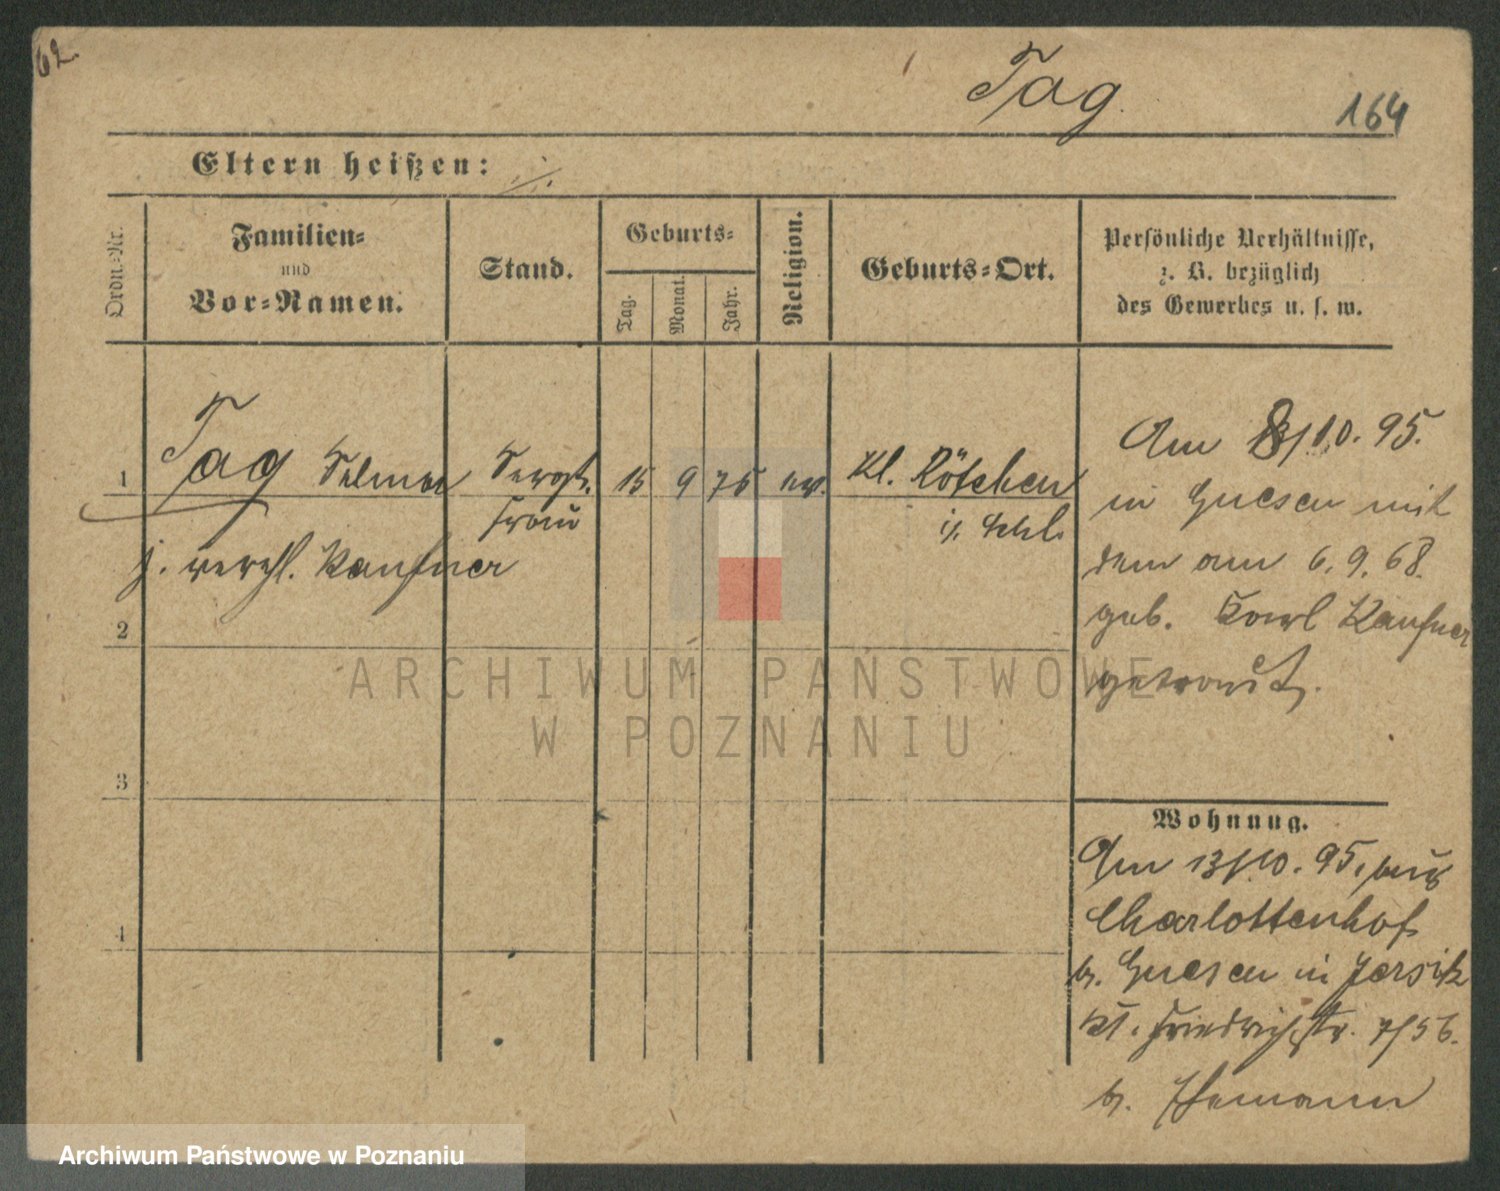 62.
Tag.
164
Eltern heißen: ./.
Ordn.-Nr.
Familien-
und
Vor-Namen.
Stand.
Geburts-
Tag.
Monat.
Jahr.
Religion.
Geburts-Ort.
Persönliche Verhältnisse,
z. B. bezüglich
des Gewerbes u. s. w.
1 Tag Selma Sergt. 15 9 75 ev. Kl. Rötchen
Frau
i/. Schl.
j. verehl. Kaufner
2
3
4
Am 8/10. 95.
in Gnesen mit
dem am 6. 9. 68.
geb. Karl Kaufner
getraut.
Wohnung.
Am 13/10. 95. aus
Charlottenhof
b. Gnesen in Jersik
Kl. Friedrichstr. 7/56.
b. Ehemann
ARCHIWUM PAŃSTWOWE
W POZNANIU
Archiwum Państwowe w Poznaniu